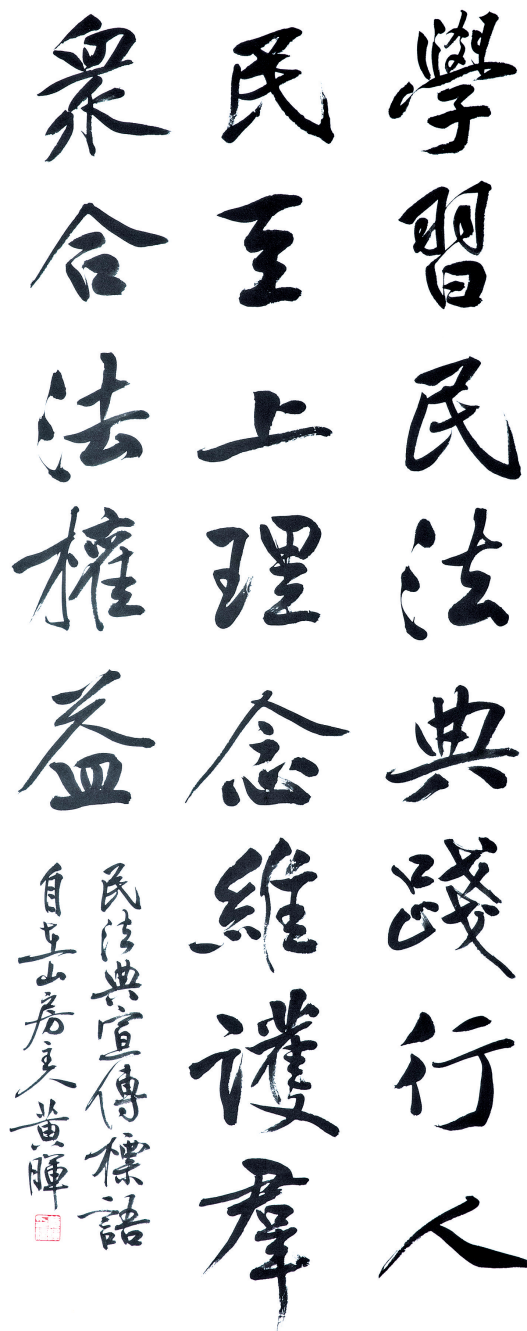 學習民法典踐行人
民至上理念維護羣
眾合法權益
民法典宣傳標語
自在山房主人黃暉